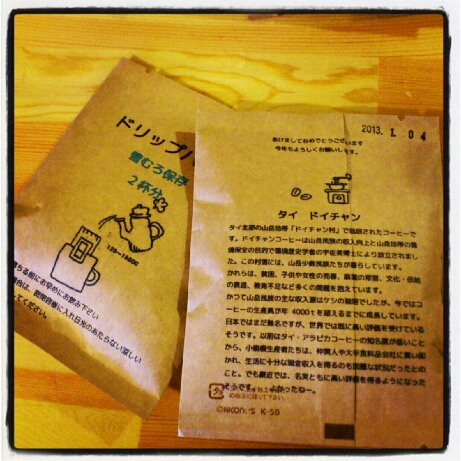 ドリップバ
豊むろ保存
2杯分
120~180cc
落ちる前にお早めにお飲み下さい
場合は、密閉容器に入れ日光のあたらない涼しい
してください。
2013. 1. 04
あけましておめでとうございます
今年もよろしくお願いします。
タイ ドイチャン
タイ北部の山岳地帯「ドイチャン村」で栽培されたコーヒーで
す。ドイチャンコーヒーは山岳民族の収入向上と山岳地帯の環
境保全の目的で
により設立されまし
た。この村には、山岳少数民族たちが暮らしています。
かれらは、貧困、子供や女性の売春、麻薬の常習、文化・伝統
の衰退、教育不足など多くの問題を抱えています。
かつて山岳民族の主な収入源はケシの栽培でしたが、今ではコ
ーヒーの生産高が年4000tを超えるまでに成長しています。
日本ではまだ無名ですが、世界では既に高い評価を受けている
そうです。以前はタイ・アラビカコーヒーの知名度が低いこと
から、小規模生産者たちは、仲買人や大手食品会社に買い叩
かれ、生活に十分な現金収入を得るのも困難な状況だったとの
こと。でも最近では、名実ともに高い評価を得るようになった
そうです。 よかったねー。
©NKCON/S K-50